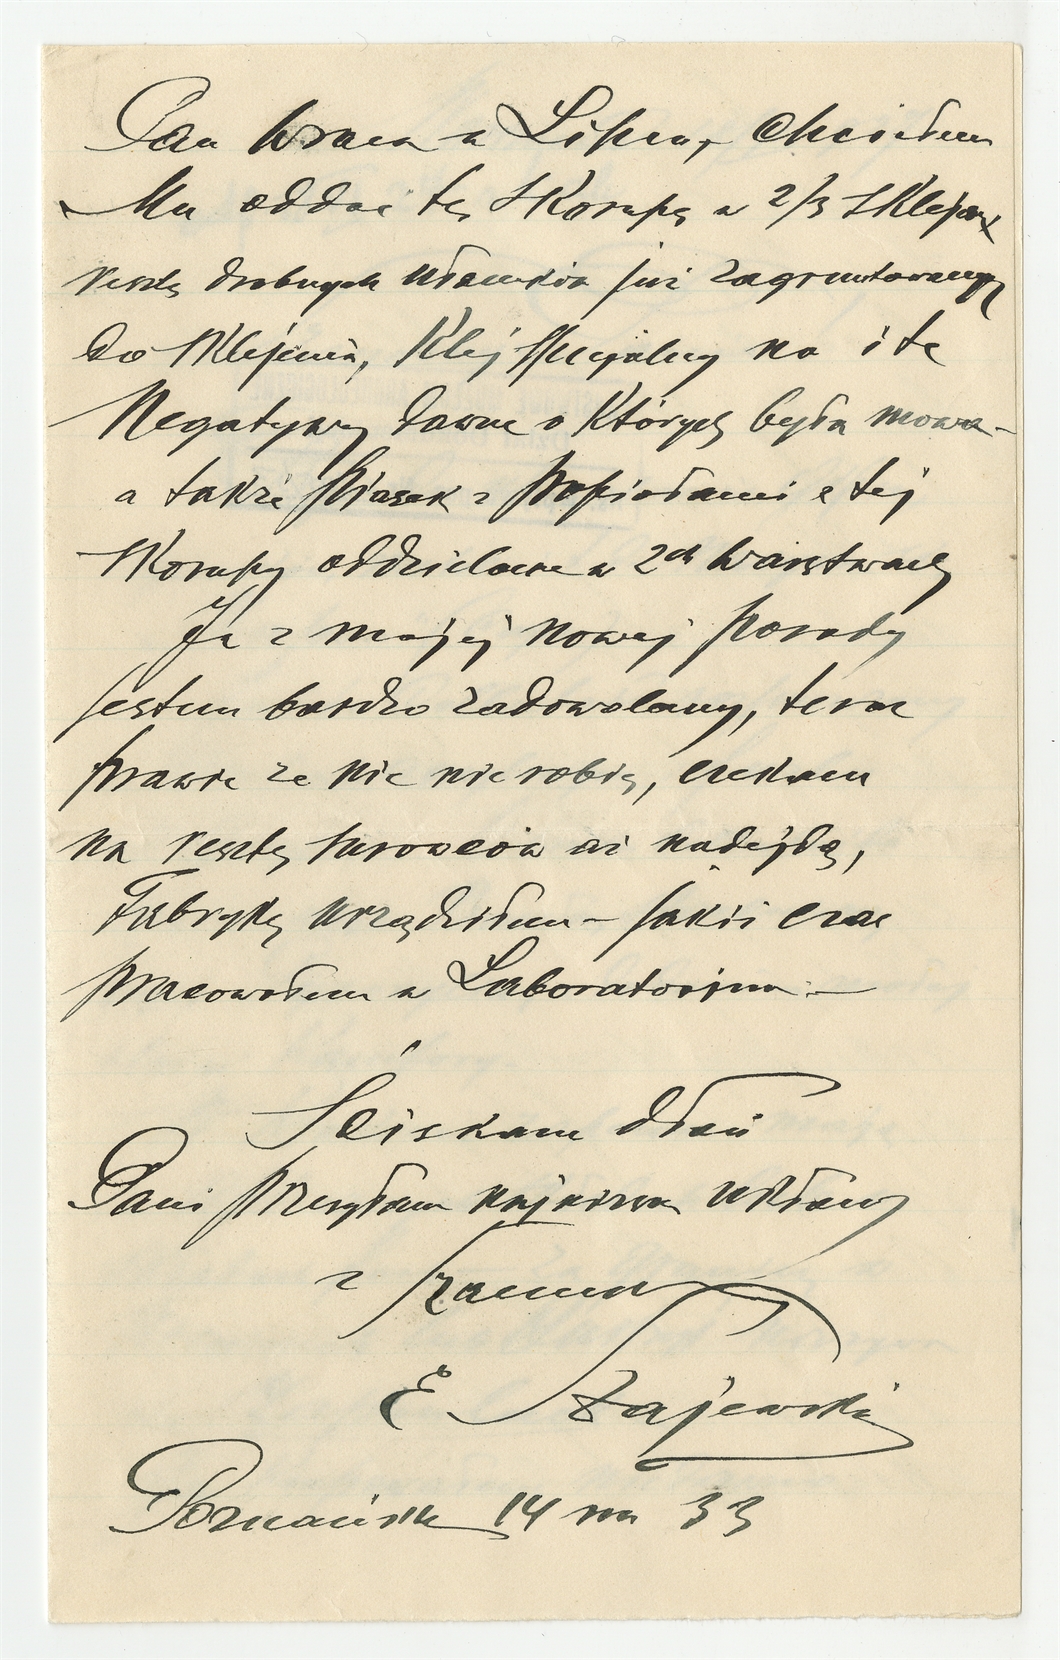 Pan wraca w Lipcu, chciałem
Mu oddać tę Skorupę w 2/3 Sklejoną
resztę drobnych ułamków już zagruntowanych
do Klejenia, Klej specjalny na i te
Negatywy dawne o których była mowa –
a także Piasek z popiołami z tej
Skorupy oddzielone w 2ch warstwach
Ja z mojej nowej posady
jestem bardzo zadowolony, teraz
prawie że nic nie robię, czekam
na resztę surowców aż nadejdą,
Fabrykę urządziłem – jakiś czas
pracowałem w Laboratorjum –
Ściskam dłoń
Pani przesyłam najniższe ukłony
z szacunkiem
E Szajewski
Poznańska 14 m 33